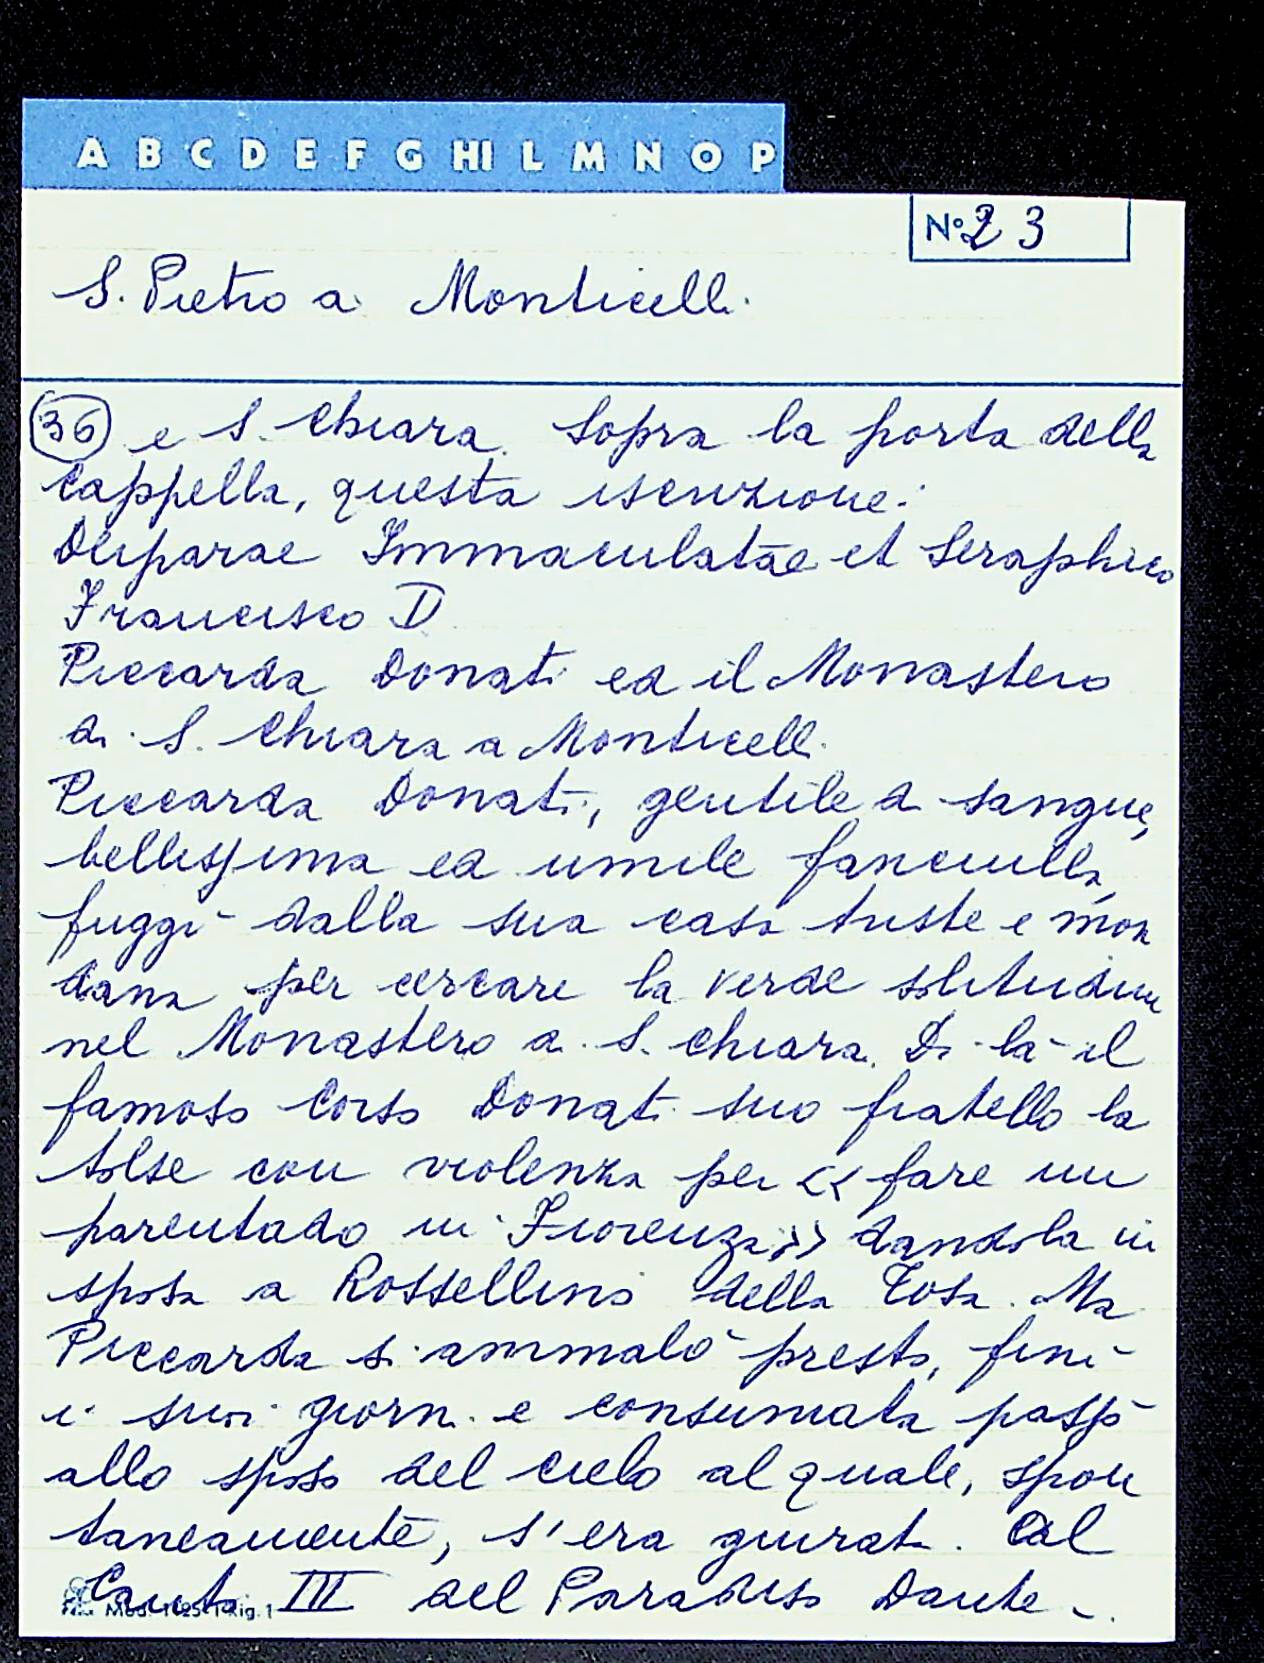 A B C D E F G HI L M N O P
N° 23
S. Pietro a Monticelli
36 e S. Chiara. Sopra la porta della
cappella, questa iscrizione:
Deiparae Immaculatae et Seraphico
Francisco D
Piccarda Donati ed il Monastero
di S. Chiara a Monticelli
Piccarda Donati, gentile di sangue,
bellissima ed umile fanciulla,
fuggì dalla sua casa triste e mon
dana per cercare la verde solitudine
nel Monastero di S. Chiara. Di là il
famoso Corso Donati suo fratello la
tolse con violenza per << fare un
parentado in Fiorenza >> dandola in
sposa a Rossellino della Tosa. Ma
Piccarda si ammalò presto, finì
i suoi giorni e consumata passò
allo sposo del cielo al quale, spon
taneamente, s'era giurata. Al
Canto III del Paradiso Dante -.